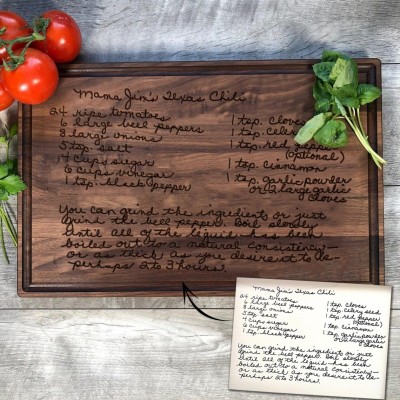 Mama Jin's Texas Chili
24 ripe tomatoes
6 large bell peppers
8 large onions
5 tsp salt
4 cups sugar
6 cups vinegar
1 tsp. black pepper
1 tsp. cloves
1 tsp. celery seed
1 tsp. red pepper
(optional)
1 tsp. cinnamon
1 tsp. garlic powder
or 2 large garlic
cloves
You can grind the ingredients or just
grind the bell pepper. Boil slowly
until all of the liquid has been
boiled out to a natural consistency—
or as thick as you desire it to be—
perhaps 2 to 3 hours.
Mama Jin's Texas Chili
24 ripe tomatoes
6 large bell peppers
8 large onions
5 tsp salt
4 cups sugar
6 cups vinegar
1 tsp. black pepper
1 tsp. cloves
1 tsp. celery seed
1 tsp. red pepper
(optional)
1 tsp cinnamon
1 tsp. garlic powder
or 2 large garlic
cloves
You can grind the ingredients or just
grind the bell pepper. Boil slowly
until all of the liquid has been
boiled out to a natural consistency—
or as thick as you desire it to be—
perhaps 2 to 3 hours.